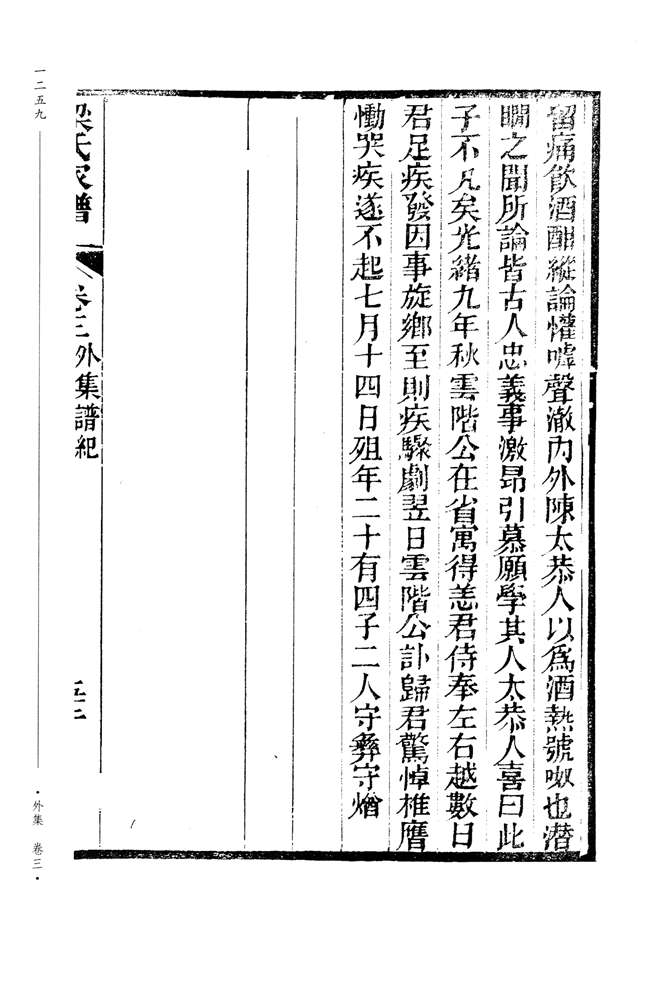 留痛飲酒酣縱論懽嘑聲澈內外陳太恭人以爲酒熱號呶也潛
瞷之聞所論皆古人忠義事激昂引慕願學其人太恭人喜曰此
子不凡矣光緒九年秋雲階公在省寓得恙君侍奉左右越數日
君足疾發因事旋鄉至則疾驟劇翌日雲階公訃歸君驚悼椎膺
慟哭疾遂不起七月十四日殂年二十有四子二人守彝守熷
梁氏家譜
卷三外集譜紀
一二五九
·外集 卷三·